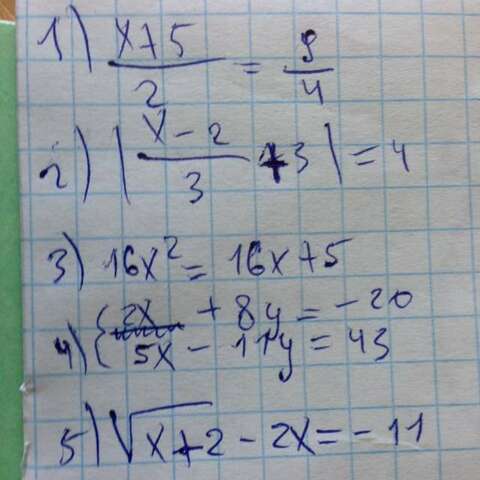 1) x+5/2 = 9/4
2) |x-2/3 +3| = 4
3) 16x² = 16x+5
4) { 2x + 8y = -20
{ 5x - 11y = 43
5) √x+2 - 2x = -11